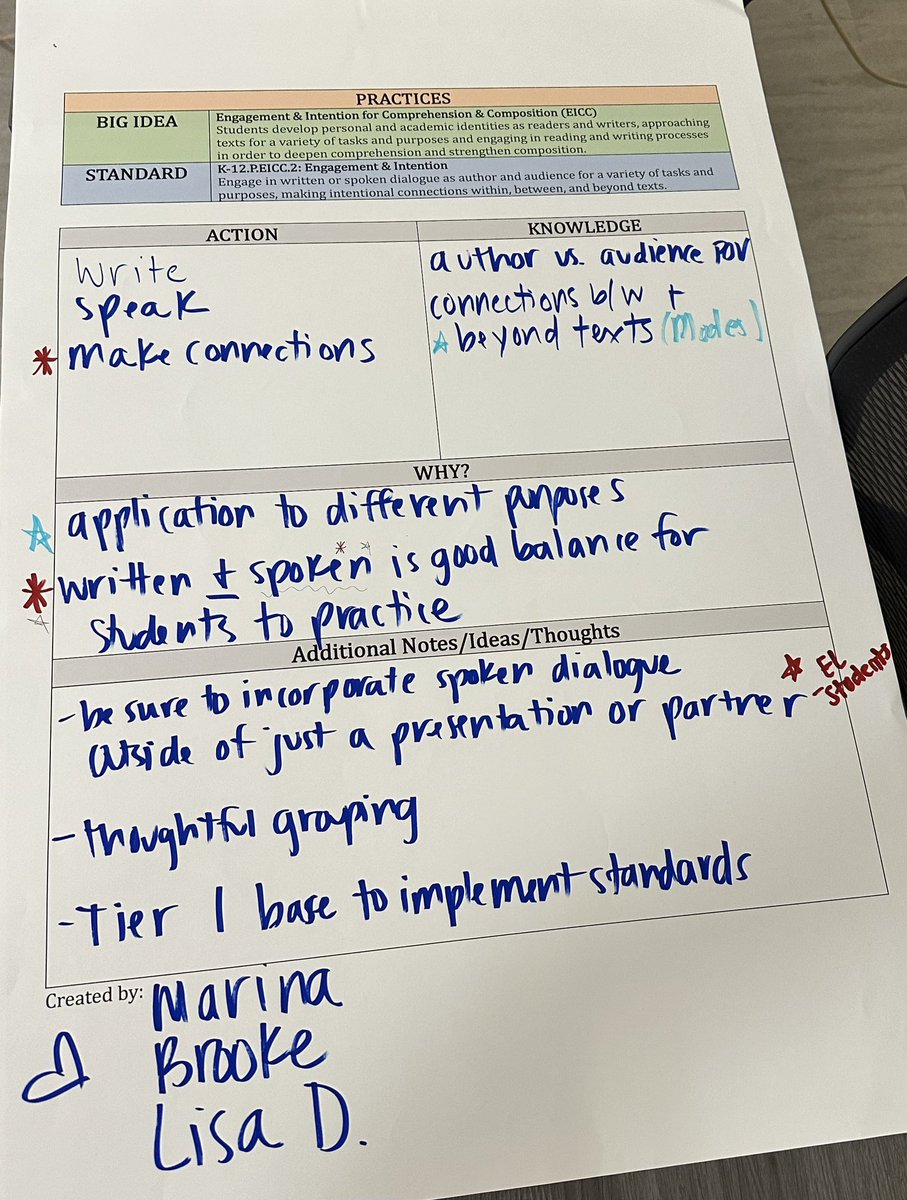 PRACTICES
BIG IDEA
Engagement & Intention for Comprehension & Composition (EICC)
Students develop personal and academic identities as readers and writers, approaching
texts for a variety of tasks and purposes and engaging in reading and writing processes
in order to deepen comprehension and strengthen composition.
STANDARD
K-12.P.EICC.2: Engagement & Intention
Engage in written or spoken dialogue as author and audience for a variety of tasks and
purposes, making intentional connections within, between, and beyond texts.
ACTION
write
speak
* make connections
KNOWLEDGE
author vs. audience POV
connections b/w +
☆ beyond texts (Modes)
WHY?
☆ application to different purposes
* written + spoken is good balance for
students to practice
Additional Notes/Ideas/Thoughts
- be sure to incorporate spoken dialogue
outside of just a presentation or partner
* EL
- students
- thoughtful grouping
- Tier 1 base to implement standards
Created by: Marina
Brooke
Lisa D.